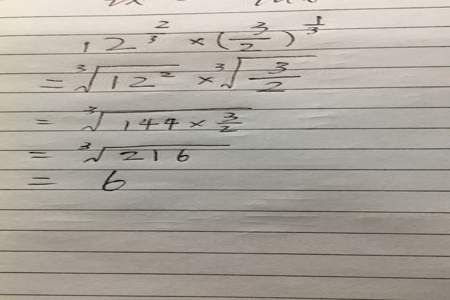 12^(2/3) × (3/2)^(1/3)
= ∛(12²) × ∛(3/2)
= ∛(144 × 3/2)
= ∛216
= 6